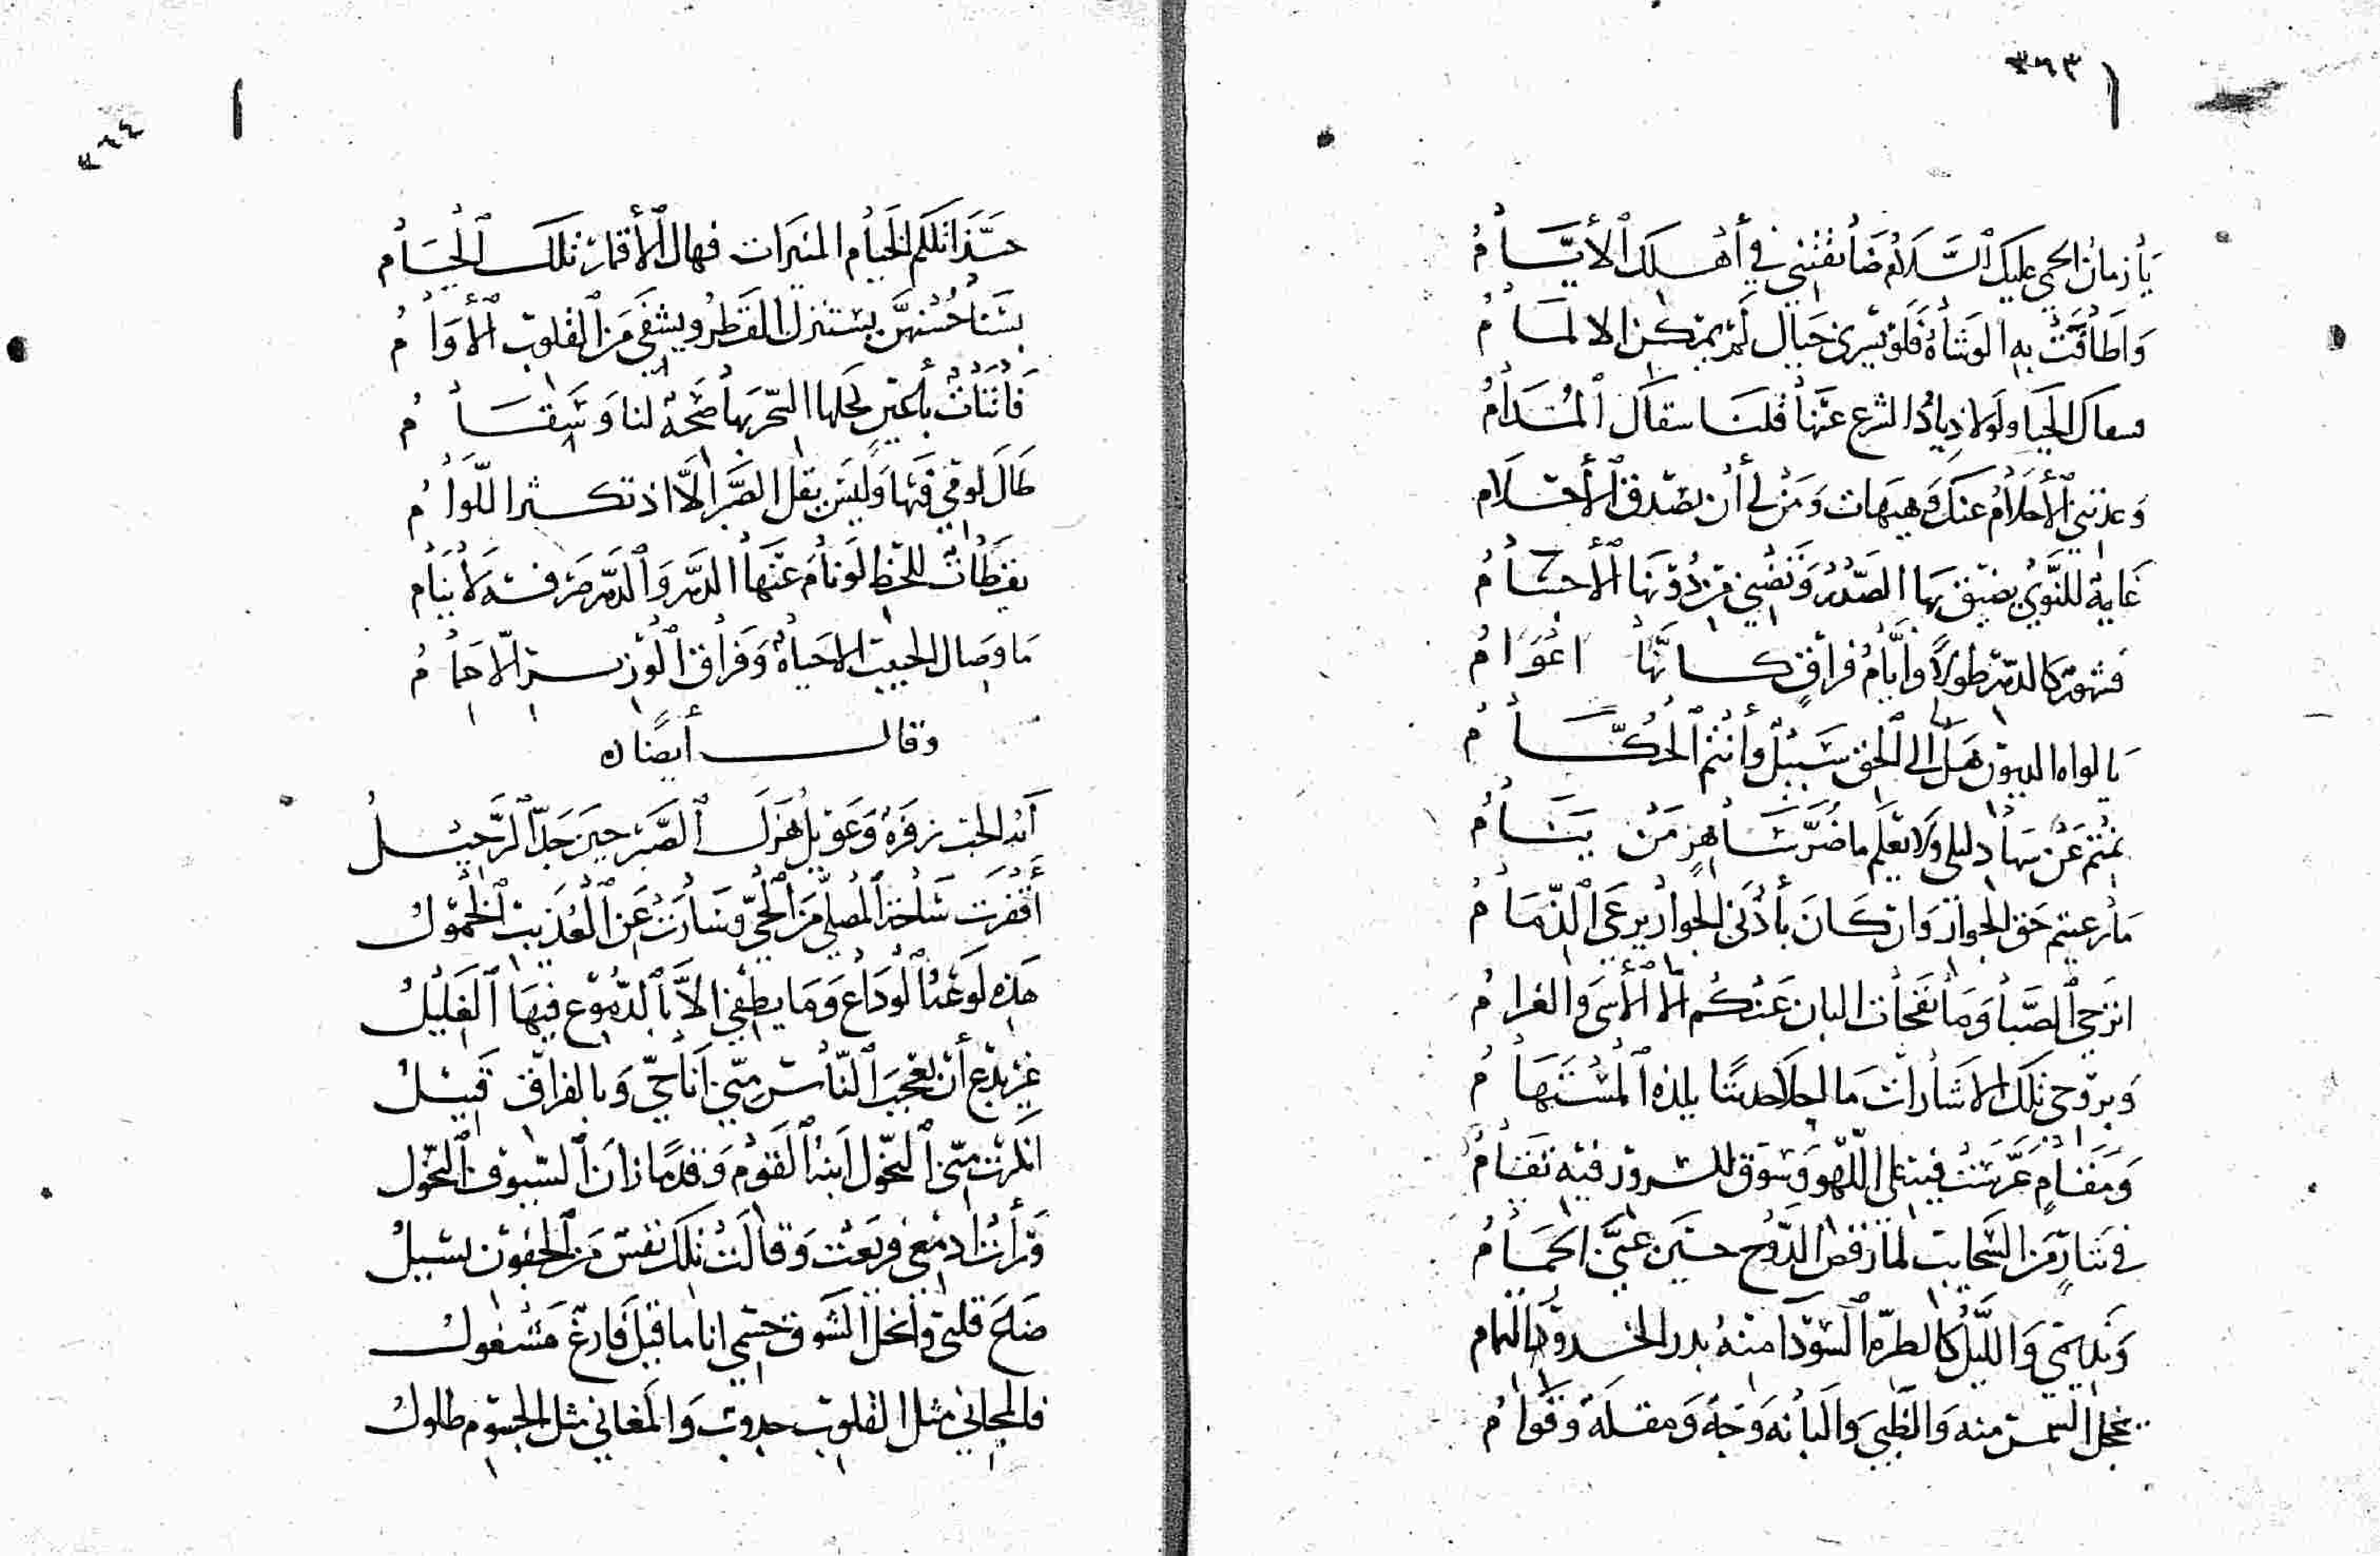 ٣٦٣
يا زمان الحمى عليك السلام ضايقتني في أهلك الأيام
وأطافت به الوشاة فلو يسري خيال لم يمكن الالمام
سقاك الحيا ولولا ذياد الشرع عنها قلنا سقاك المدام
وعدتني الأحلام عنك وهيهات ومن لي أن تصدق الأحلام
غاية للنوى يضيق بها الصدر وتنضى من دونها الأجسام
فشهور كالدهر طولا وأيام فراق كانها اعوام
يا لواة الديون هل الى الحق سبيل وأنتم الحكام
نمتم عن سهاد ليلى ولا يعلم ما ضر ساهر من ينام
ما رعيتم حق الجوار وان كان بأدنى الجوار يرعى الذمام
اترجى الصبا وما نفحات البان عنكم الا الأسى والغرام
وبروحي تلك الاشارات ما احلا حديثا يلذه المستهام
ومقام عريت فيه على اللهو وسوق للسرور فيه تقام
في نثار من السحايب لما رقص الدوح حين غنى الحمام
ونديمي والليل كالطرة السودا منه بدر الخدور التمام
يخجل الشمس منه والظبي والبانه وجه ومقلة وقوام
٣٦٤
حبذا تلكم الخيام المنيرات فهال الأقمار تلك الخيام
بسنا حسنهن يستنزل القطر ويشفى من القلوب الأوام
فاتنات بأعين كحلها السحر بها صحة لنا وسقام
طال لومي فيها وليس يقل الصبر الا اذ تكثر اللوام
يقظات للحظ لو نام عنها الدهر والدهر صرفه لا ينام
ما وصال الحبيب الا حياة وفراق العزيز الا حمام
وقال أيضا
أبدا لحب زفرة وعويل هزل الصبر حين جد الرحيل
أقفرت ساحة المصلى من الحي وسارت عن العذيب الحمول
هذه لوعة الوداع وما يطفى الا بالدموع فيها الغليل
غير بدع أن يعجب الناس مني أنا حي وبالفراق قتيل
انكرت مني النحول ابنة القوم وقدما زان السيوف النحول
ورأت ادمعي فريعت وقالت تلك نفس من الجفون تسيل
ضاع قلبي وانحل الشوق جسمي انا ما قيل فارغ مشغول
فالمجاني مثل القلوب جدوب والمغاني مثل الجسوم طلول